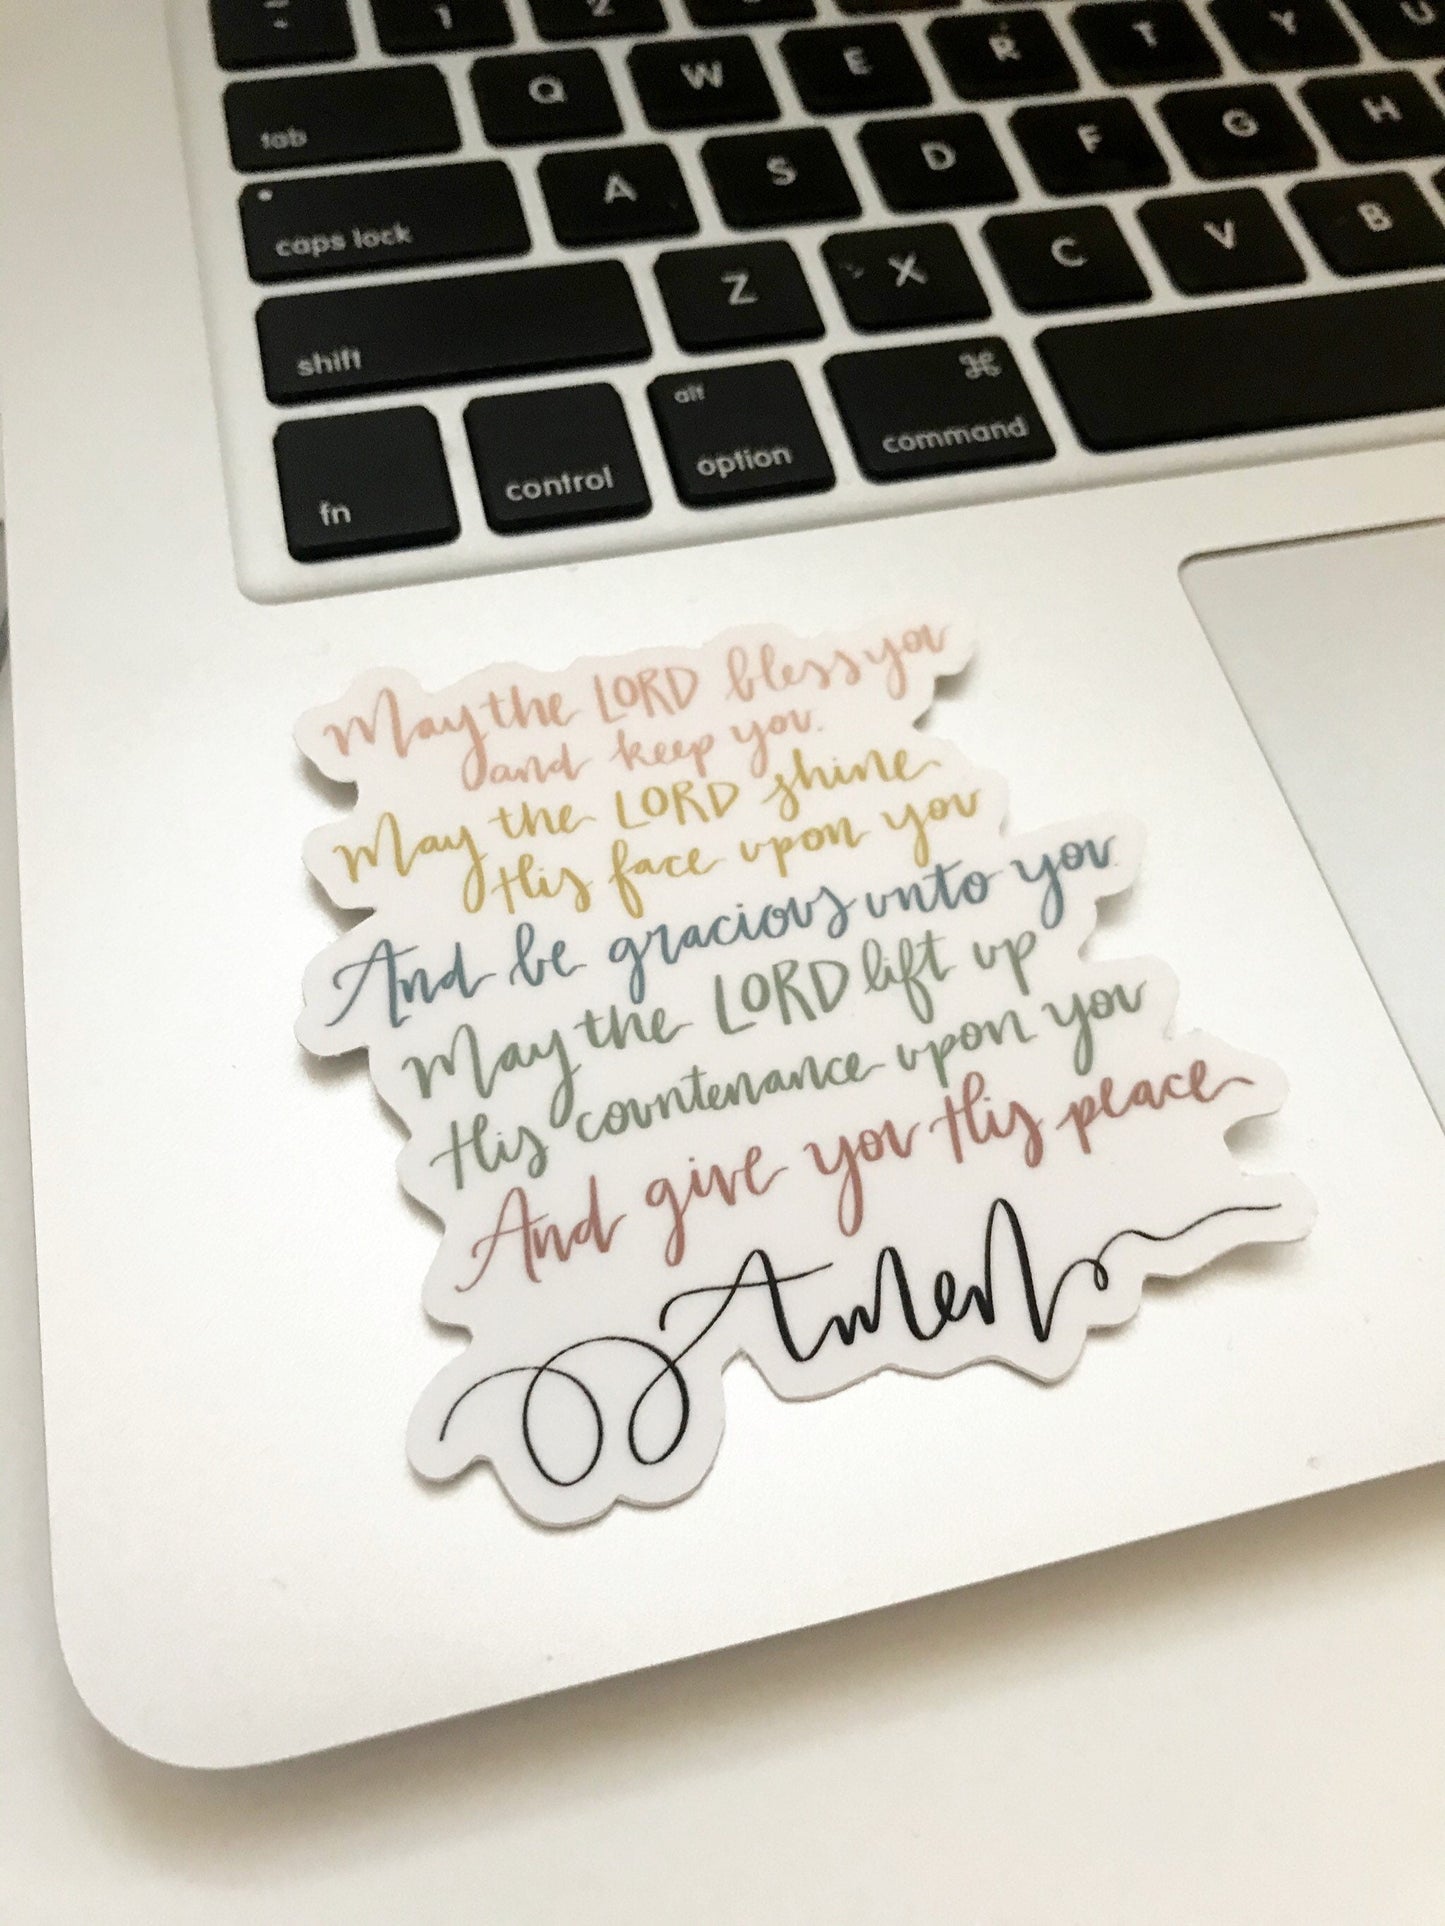 1 2
tab Q W E R T Y U
caps lock A S D F G H
shift Z X C V B
fn control alt option ⌘ command
May the LORD bless you
and keep you.
May the LORD shine
His face upon you
And be gracious unto you.
May the LORD lift up
His countenance upon you
And give you His peace
Amen